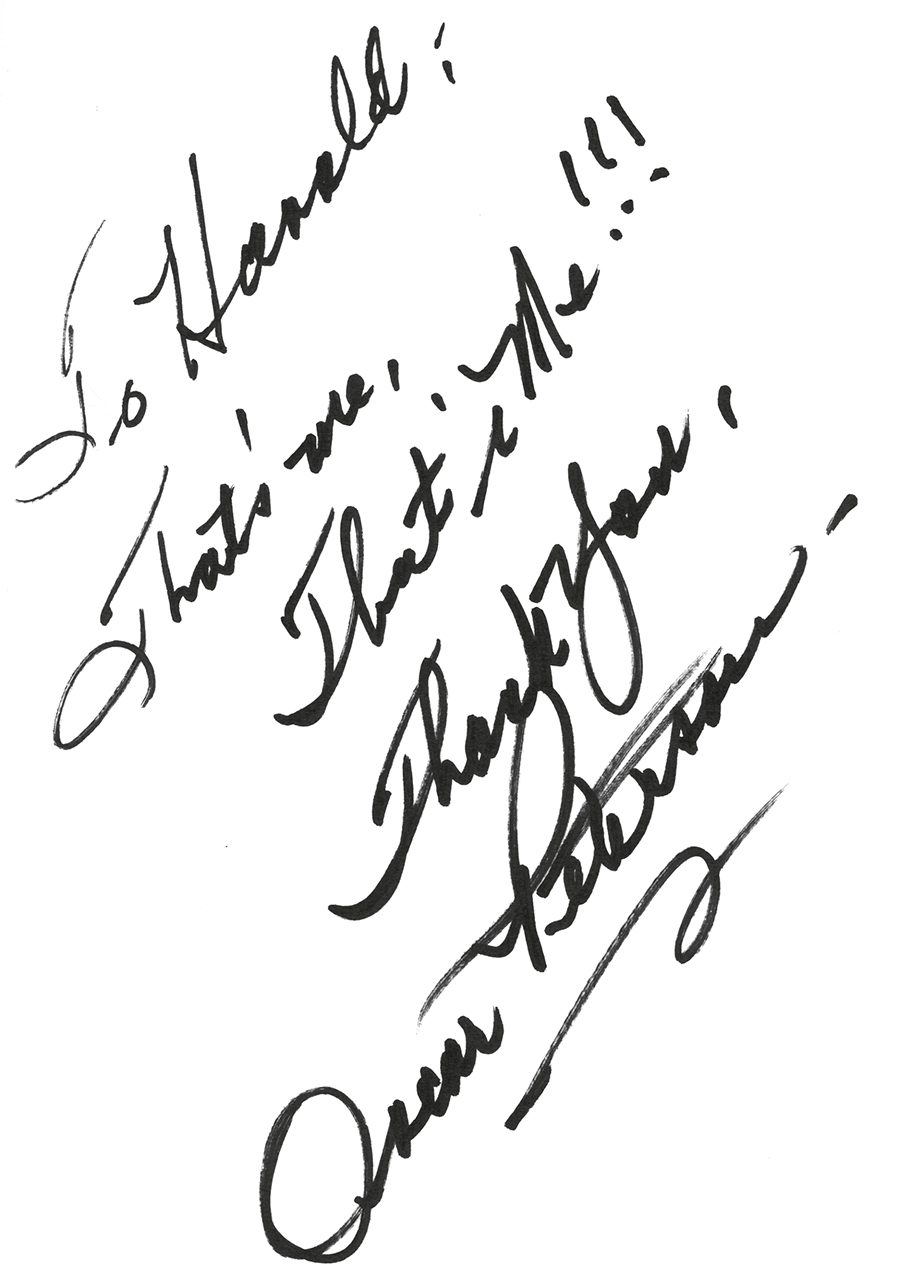 To Harold:
That's me,
That's Me!!!
Thank You,
Oscar Peterson.